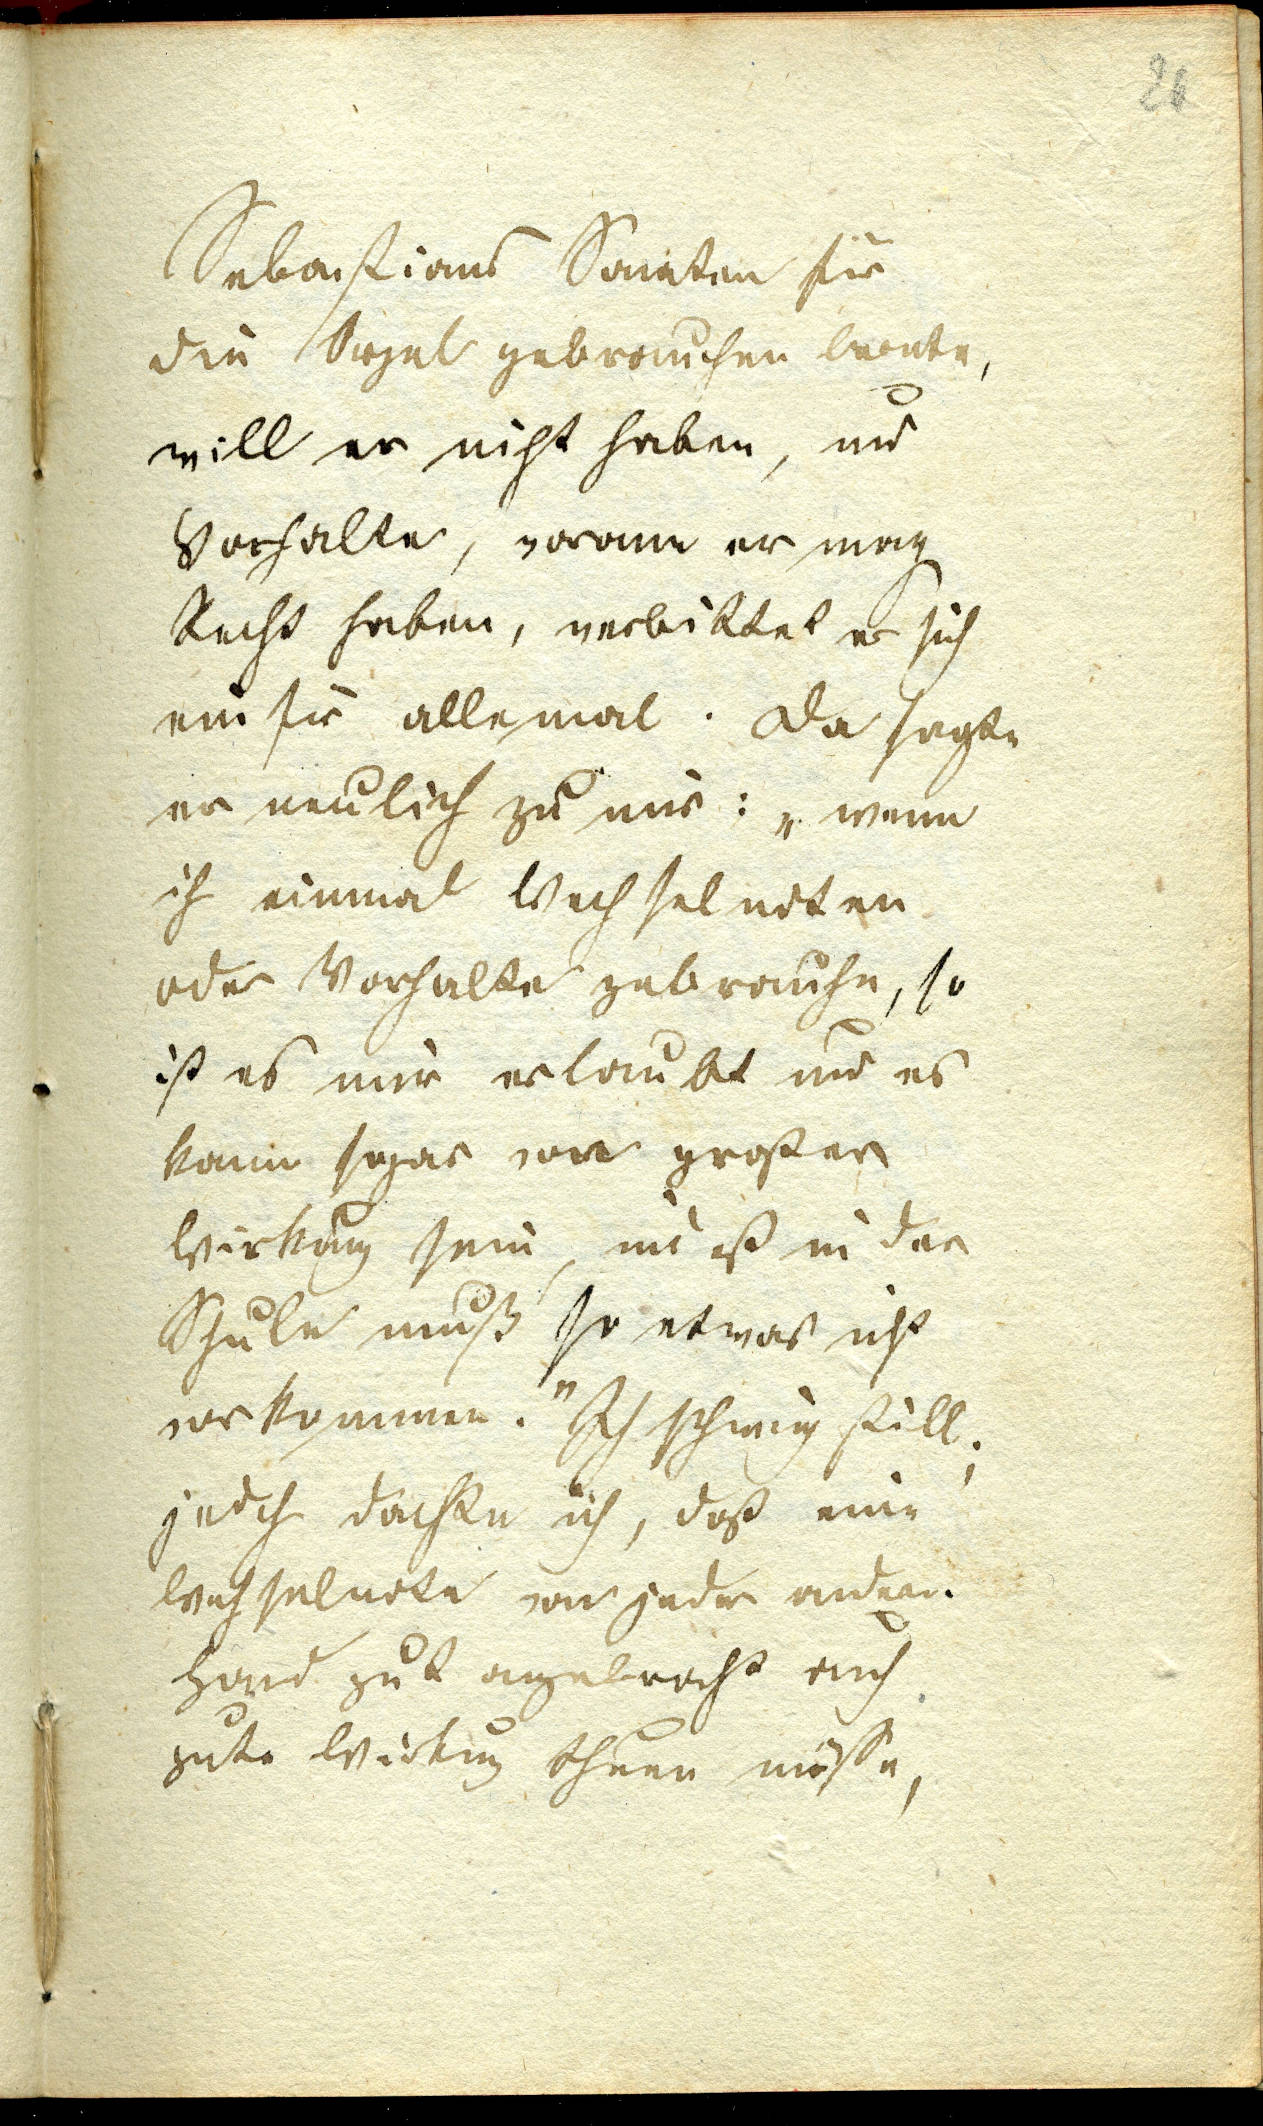 26
Sebastians Sonaten für
die Orgel gebrauchen lernte,
will er nicht haben, und
Vorhalte, woran er mag
Recht haben, verbittet er sich
ein für allemal. Da sagte
er neulich zu mir: „wenn
ich einmal Wechselnoten
oder Vorhalte gebrauche, so
ist es mir erlaubt und es
kann sogar von großer
Wirkung sein, in der
Schule muß so etwas nicht
vorkommen." Ich schwieg still;
jedoch dachte ich, daß eine
Wechselnote von jeder andern
Hand gut angebracht auch
gute Wirkung thuen müsse,